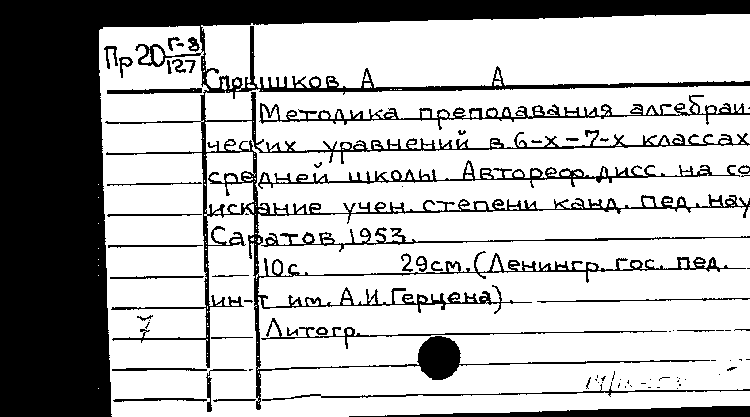 Пр20 Г-8/127
Спрышков, А А
Методика преподавания алгебраи-
ческих уравнений в 6-х-7-х классах
средней школы. Автореф. дисс. на со
искание учен. степени канд. пед. нау
Саратов, 1953.
10с. 29см. (Ленингр. гос. пед.
ин-т им. А.И.Герцена).
Литогр.
7